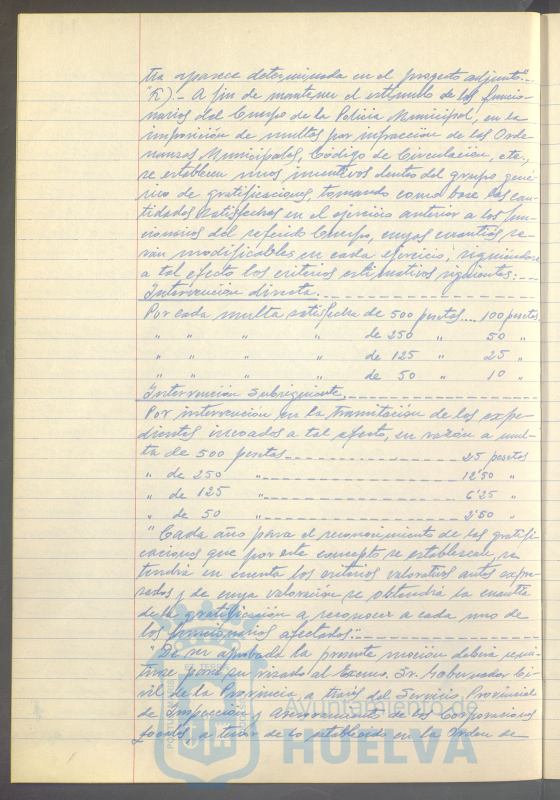 tra aparece determinada en el proyecto adjunto".-
"K).- A fin de mantener el estímulo de los funcio-
narios del Cuerpo de la Policía Municipal, en la
imposición de multas por infracción de las Orde-
nanzas Municipales, Código de Circulación, etc.,
se establecen unos incentivos dentro del grupo gené-
rico de gratificaciones, tomando como base las can-
tidades satisfechas en el ejercicio anterior a los fun-
cionarios del referido Cuerpo, cuyas cuantías se-
rán modificables en cada ejercicio, siguiéndose
a tal efecto los criterios estimativos siguientes:---
Intervención directa.---
Por cada multa satisfecha de 500 pesetas.... 100 pesetas.
" " " " de 250 " 50 "
" " " " de 125 " 25 "
" " " " de 50 " 10 "
Intervención subsiguiente.---
Por intervención en la tramitación de los expe-
dientes incoados a tal efecto, en razón a mul-
ta de 500 pesetas--- 25 pesetas
" de 250 "--- 12'50 "
" de 125 "--- 6'25 "
" de 50 "--- 2'50 "
"Cada año para el reconocimiento de las gratifi-
caciones que por este concepto se establecen, se
tendrá en cuenta los criterios valorativos antes expre-
sados y de cuya valoración se obtendrá la cuantía
de la gratificación a reconocer a cada uno de
los funcionarios afectados".---
"De ser aprobada la presente moción deberá remi-
tirse para su visado al Excmo. Sr. Gobernador Ci-
vil de la Provincia, a través del Servicio Provincial
de Inspección y Asesoramiento de las Corporaciones
Locales, a tenor de lo establecido en la Orden de
Ayuntamiento de
HUELVA